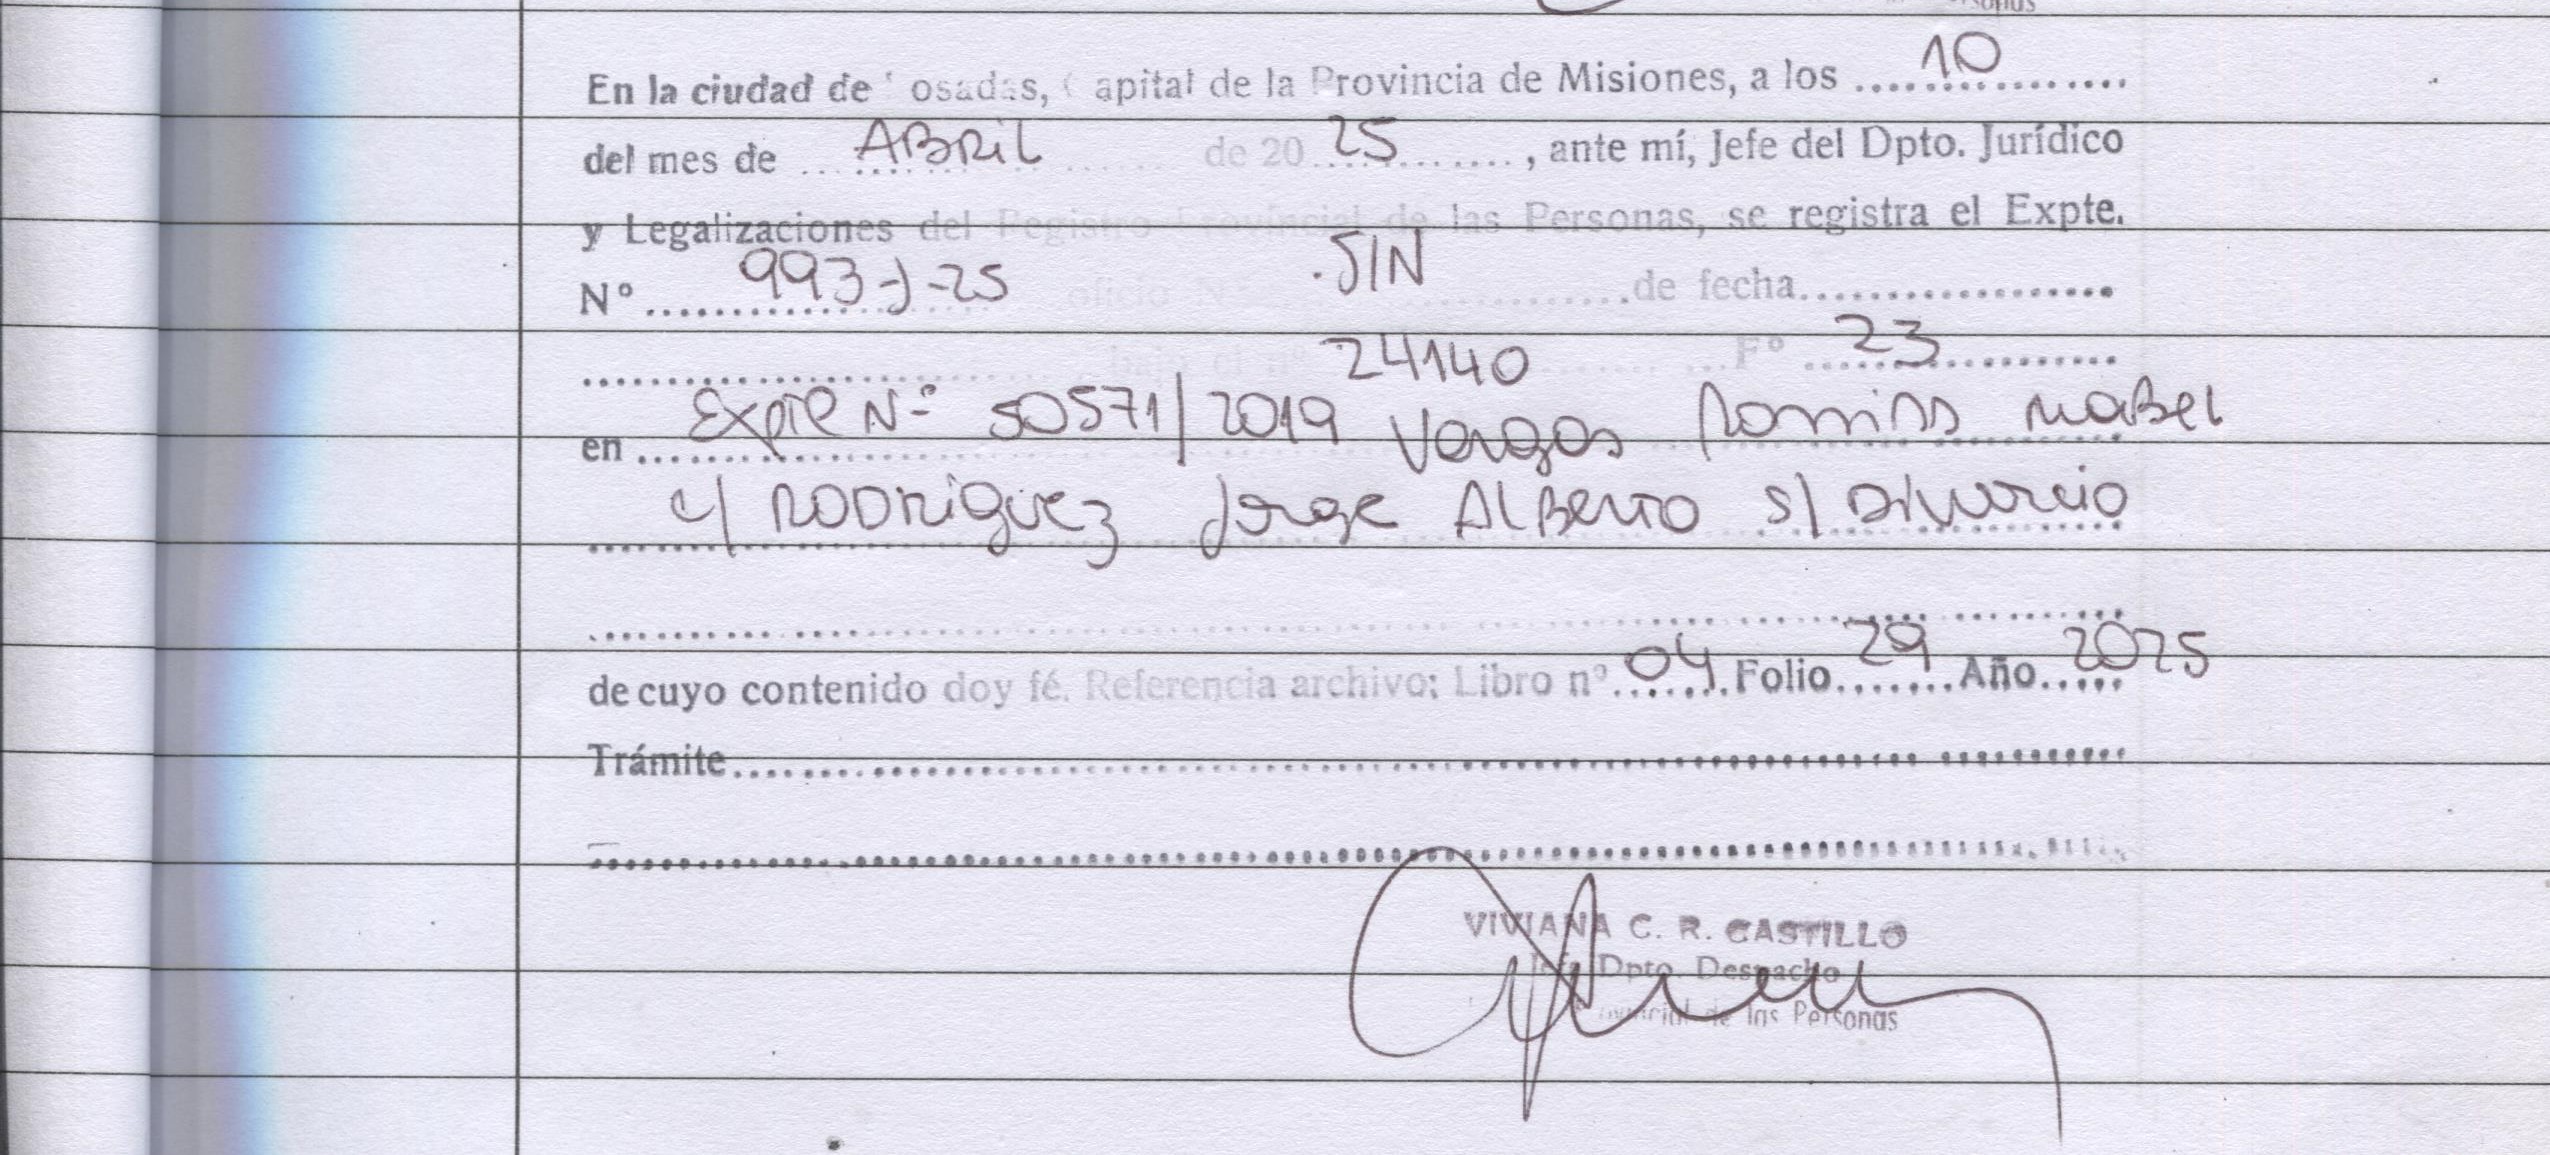 En la ciudad de osadas, apital de la Provincia de Misiones, a los ....10....
del mes de ... ABRiL ... de 20 ..25...., ante mí, Jefe del Dpto. Jurídico
y Legalizaciones del Registro Provincial de las Personas, se registra el Expte.
N° ....993-J-25 oficio N° .SIN ........de fecha...................
................ bajo el n° 24140 .... F° ....23..........
en ....Expte N° 50571/2019 Vargas Romina Mabel
c/ RODRiguez Jorge ALBerto s/ Divorcio
................................
de cuyo contenido doy fé. Referencia archivo: Libro n° .04.Folio..29..Año..2025
Trámite................................
................................
VIVIANA C. R. CASTILLO
Jefe Dpto. Despacho
Provincial de las Personas